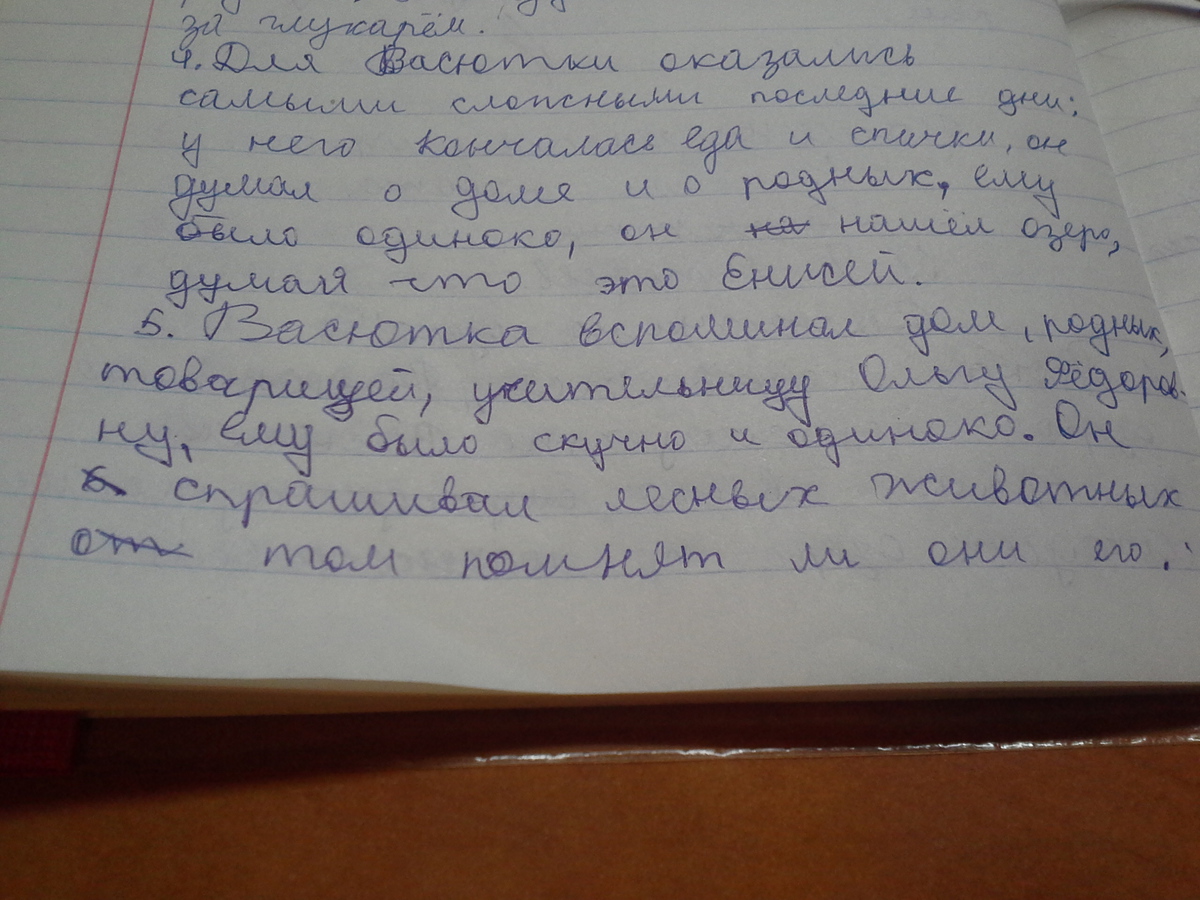 за глухарём.
4. Для Васютки оказались
самыми сложными последние дни:
у него кончалась еда и спички, он
думал о доме и о родных, ему
было одиноко, он на нашёл озеро,
думая что это Енисей.
5. Васютка вспоминал дом, родных,
товарищей, учительницу Ольгу Фёдоров-
ну, ему было скучно и одиноко. Он
спрашивал лесных животных
от том помнят ли они его.